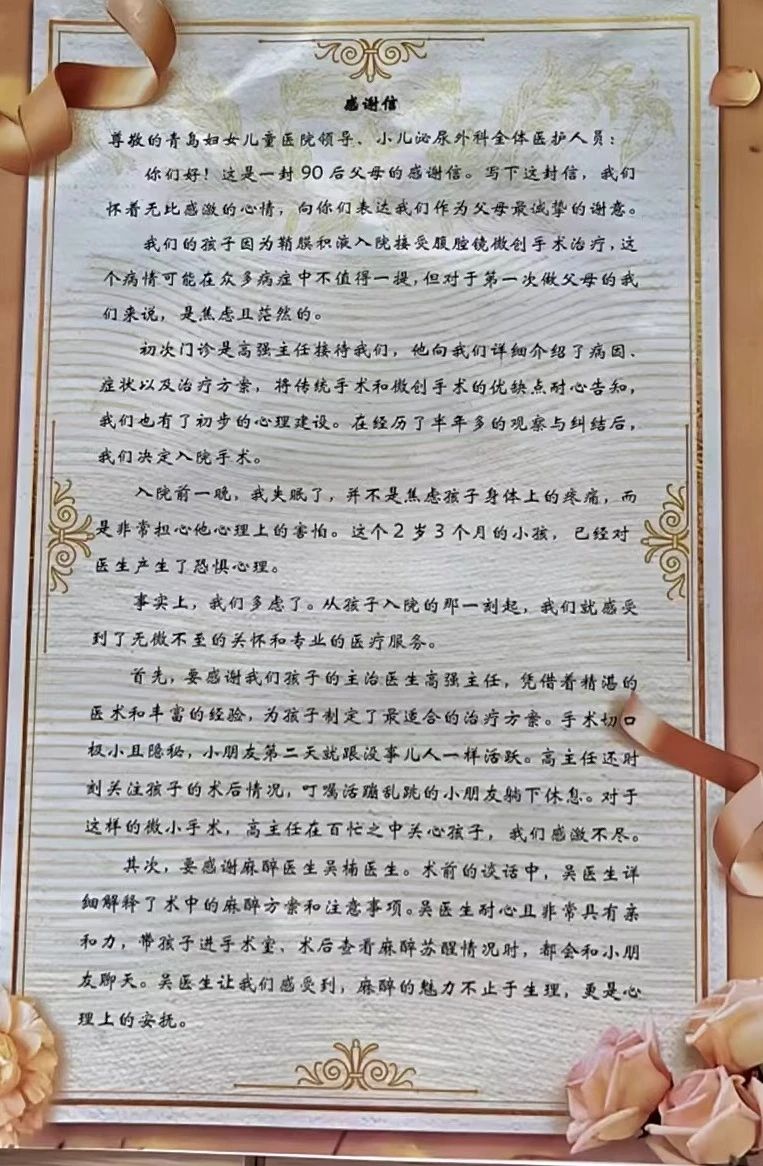 感谢信
尊敬的青岛妇女儿童医院领导、小儿泌尿外科全体医护人员：
你们好！这是一封90后父母的感谢信。写下这封信，我们
怀着无比感激的心情，向你们表达我们作为父母最诚挚的谢意。
我们的孩子因为鞘膜积液入院接受腹腔镜微创手术治疗，这
个病情可能在众多病症中不值得一提，但对于第一次做父母的我
们来说，是焦虑且茫然的。
初次门诊是高强主任接待我们，他向我们详细介绍了病因、
症状以及治疗方案，将传统手术和微创手术的优缺点耐心告知，
我们也有了初步的心理建设。在经历了半年多的观察与纠结后，
我们决定入院手术。
入院前一晚，我失眠了，并不是焦虑孩子身体上的疼痛，而
是非常担心他心理上的害怕。这个2岁3个月的小孩，已经对
医生产生了恐惧心理。
事实上，我们多虑了。从孩子入院的那一刻起，我们就感受
到了无微不至的关怀和专业的医疗服务。
首先，要感谢我们孩子的主治医生高强主任，凭借着精湛的
医术和丰富的经验，为孩子制定了最适合的治疗方案。手术切口
极小且隐秘，小朋友第二天就跟没事儿人一样活跃。高主任还时
刻关注孩子的术后情况，叮嘱活蹦乱跳的小朋友躺下休息。对于
这样的微小手术，高主任在百忙之中关心孩子，我们感激不尽。
其次，要感谢麻醉医生吴楠医生。术前的谈话中，吴医生详
细解释了术中的麻醉方案和注意事项。吴医生耐心且非常具有亲
和力，带孩子进手术室、术后查看麻醉苏醒情况时，都会和小朋
友聊天。吴医生让我们感受到，麻醉的魅力不止于生理，更是心
理上的安抚。